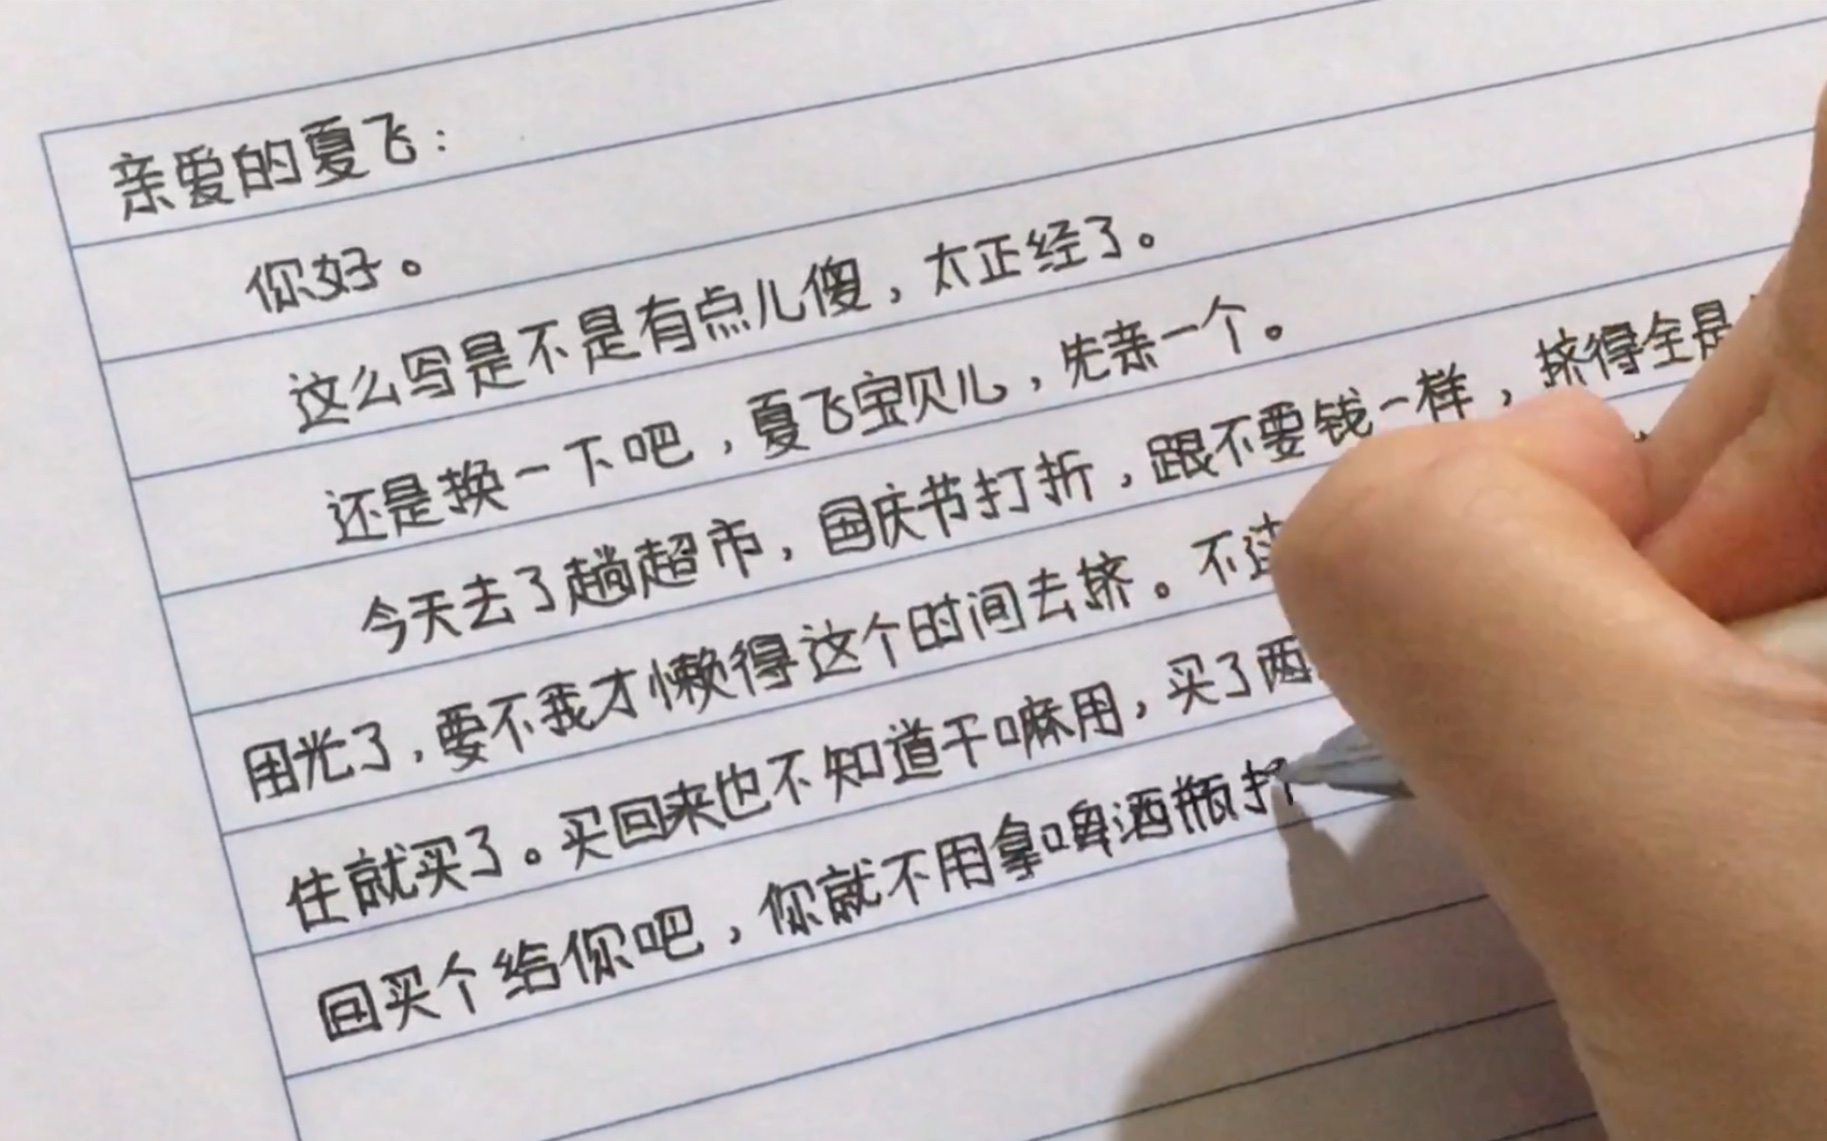 亲爱的夏飞：
你好。
这么写是不是有点儿傻，太正经了。
还是换一下吧，夏飞宝贝儿，先亲一个。
今天去了趟超市，国庆节打折，跟不要钱一样，挤得全是
用光了，要不我才懒得这个时间去挤。不过
住就买了。买回来也不知道干嘛用，买了两
回买个给你吧，你就不用拿啤酒瓶